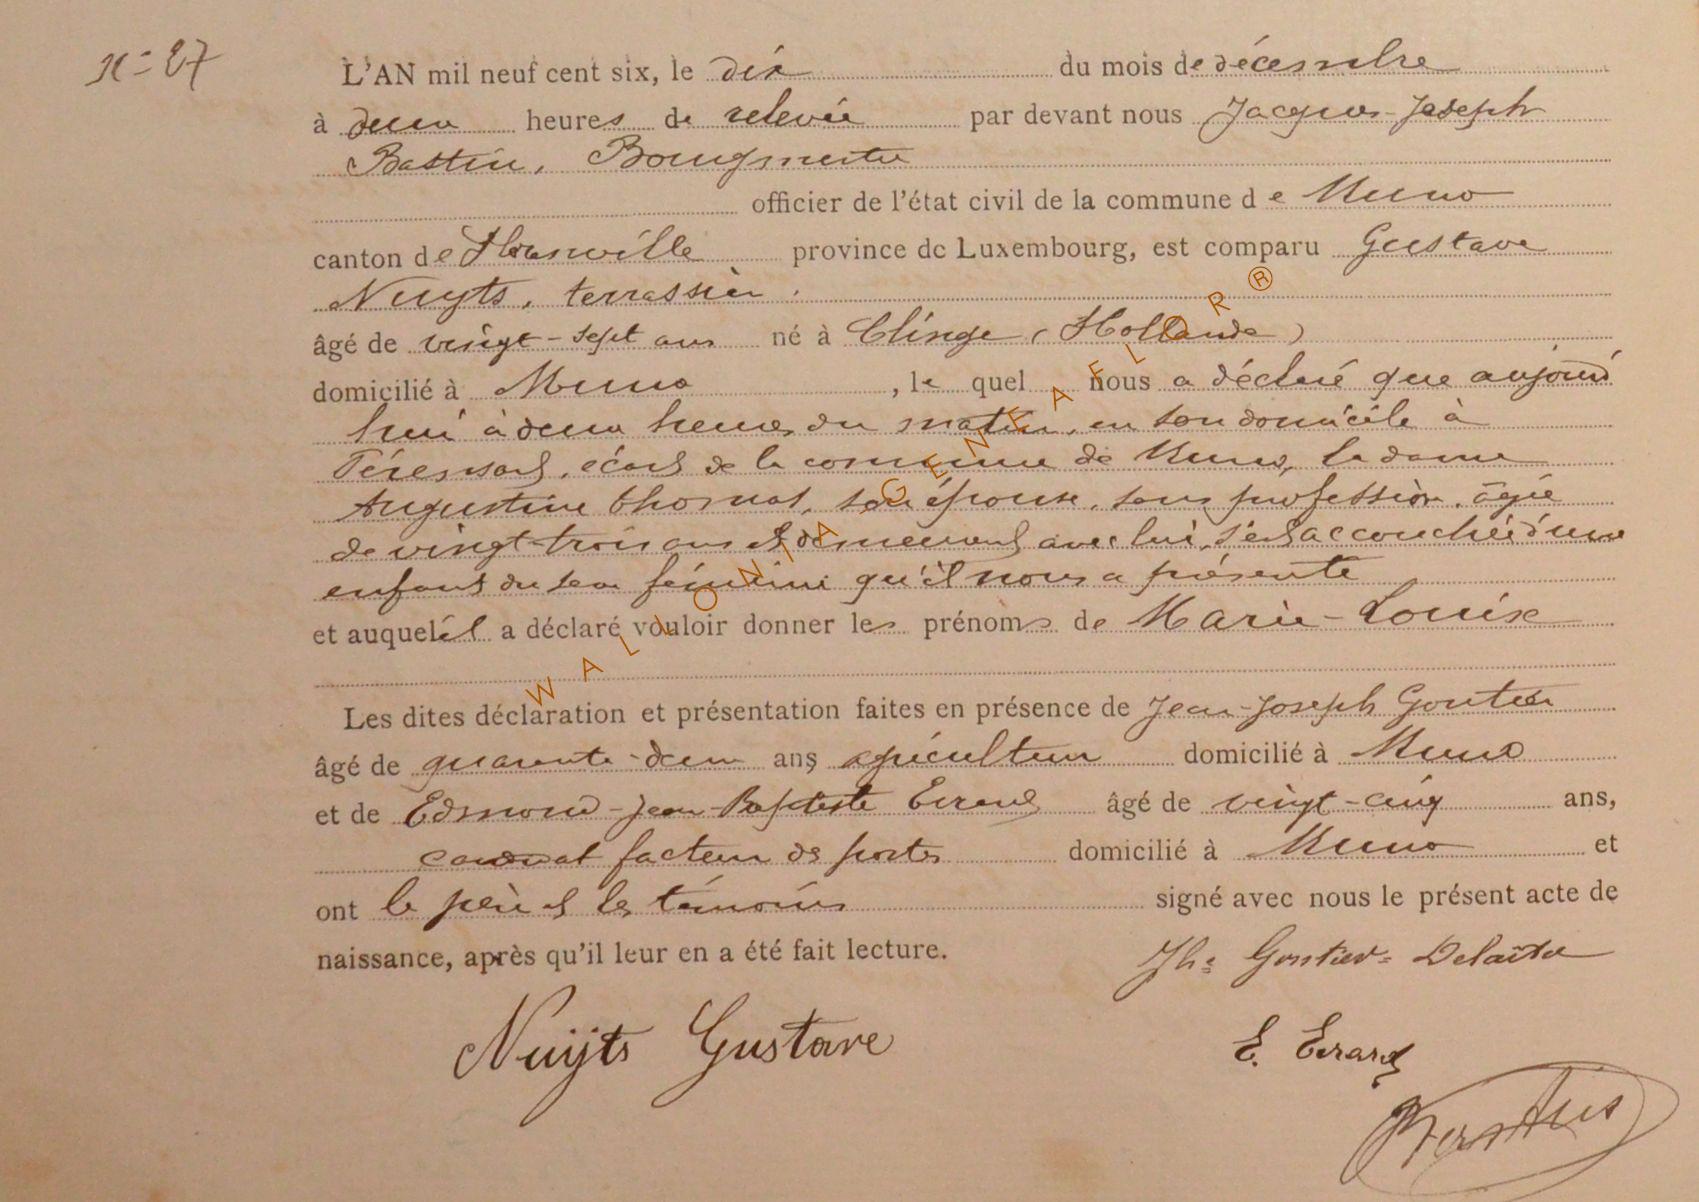 N° 27
L'AN mil neuf cent six, le dix du mois de décembre
à deux heures de relevée par devant nous Jacques-Joseph
Bastin, Bourgmestre
officier de l'état civil de la commune de Muno
canton de Florenville province de Luxembourg, est comparu Gustave
Nuyts, terrassier
âgé de vingt-sept ans né à Clinge (Hollande)
domicilié à Muno, le quel nous a déclaré que aujourd
hui à deux heures du matin, en son domicile à
écart de la commune de Muno, la dame
Augustine Thomas, son épouse, sans profession, âgée
de vingt-trois ans et demeurant avec lui, s'est accouchée d'une
enfant du sexe féminin qu'il nous a présenté
et auquel il a déclaré vouloir donner les prénoms de Marie-Louise
Les dites déclaration et présentation faites en présence de Jean-Joseph Gontier
âgé de quarante-deux ans domicilié à Muno
et de Edmond-Jean-Baptiste Evrard âgé de vingt-cinq ans,
facteur des postes domicilié à Muno et
ont le père et les témoins signé avec nous le présent acte de
naissance, après qu'il leur en a été fait lecture.
Jh= Gontier=
Nuyts Gustave
E. Evrard
WALLONIA GENEAFLOR ®